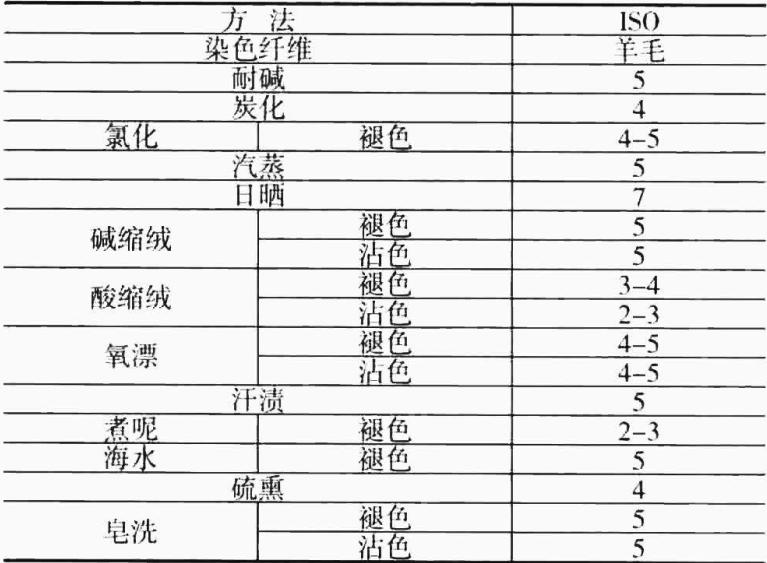 方 法 ISO
染色纤维 羊毛
耐碱 5
炭化 4
氯化 褪色 4-5
汽蒸 5
日晒 7
碱缩绒 褪色 5
沾色 5
酸缩绒 褪色 3-4
沾色 2-3
氧漂 褪色 4-5
沾色 4-5
汗渍 5
煮呢 褪色 2-3
海水 褪色 5
硫熏 4
皂洗 褪色 5
沾色 5